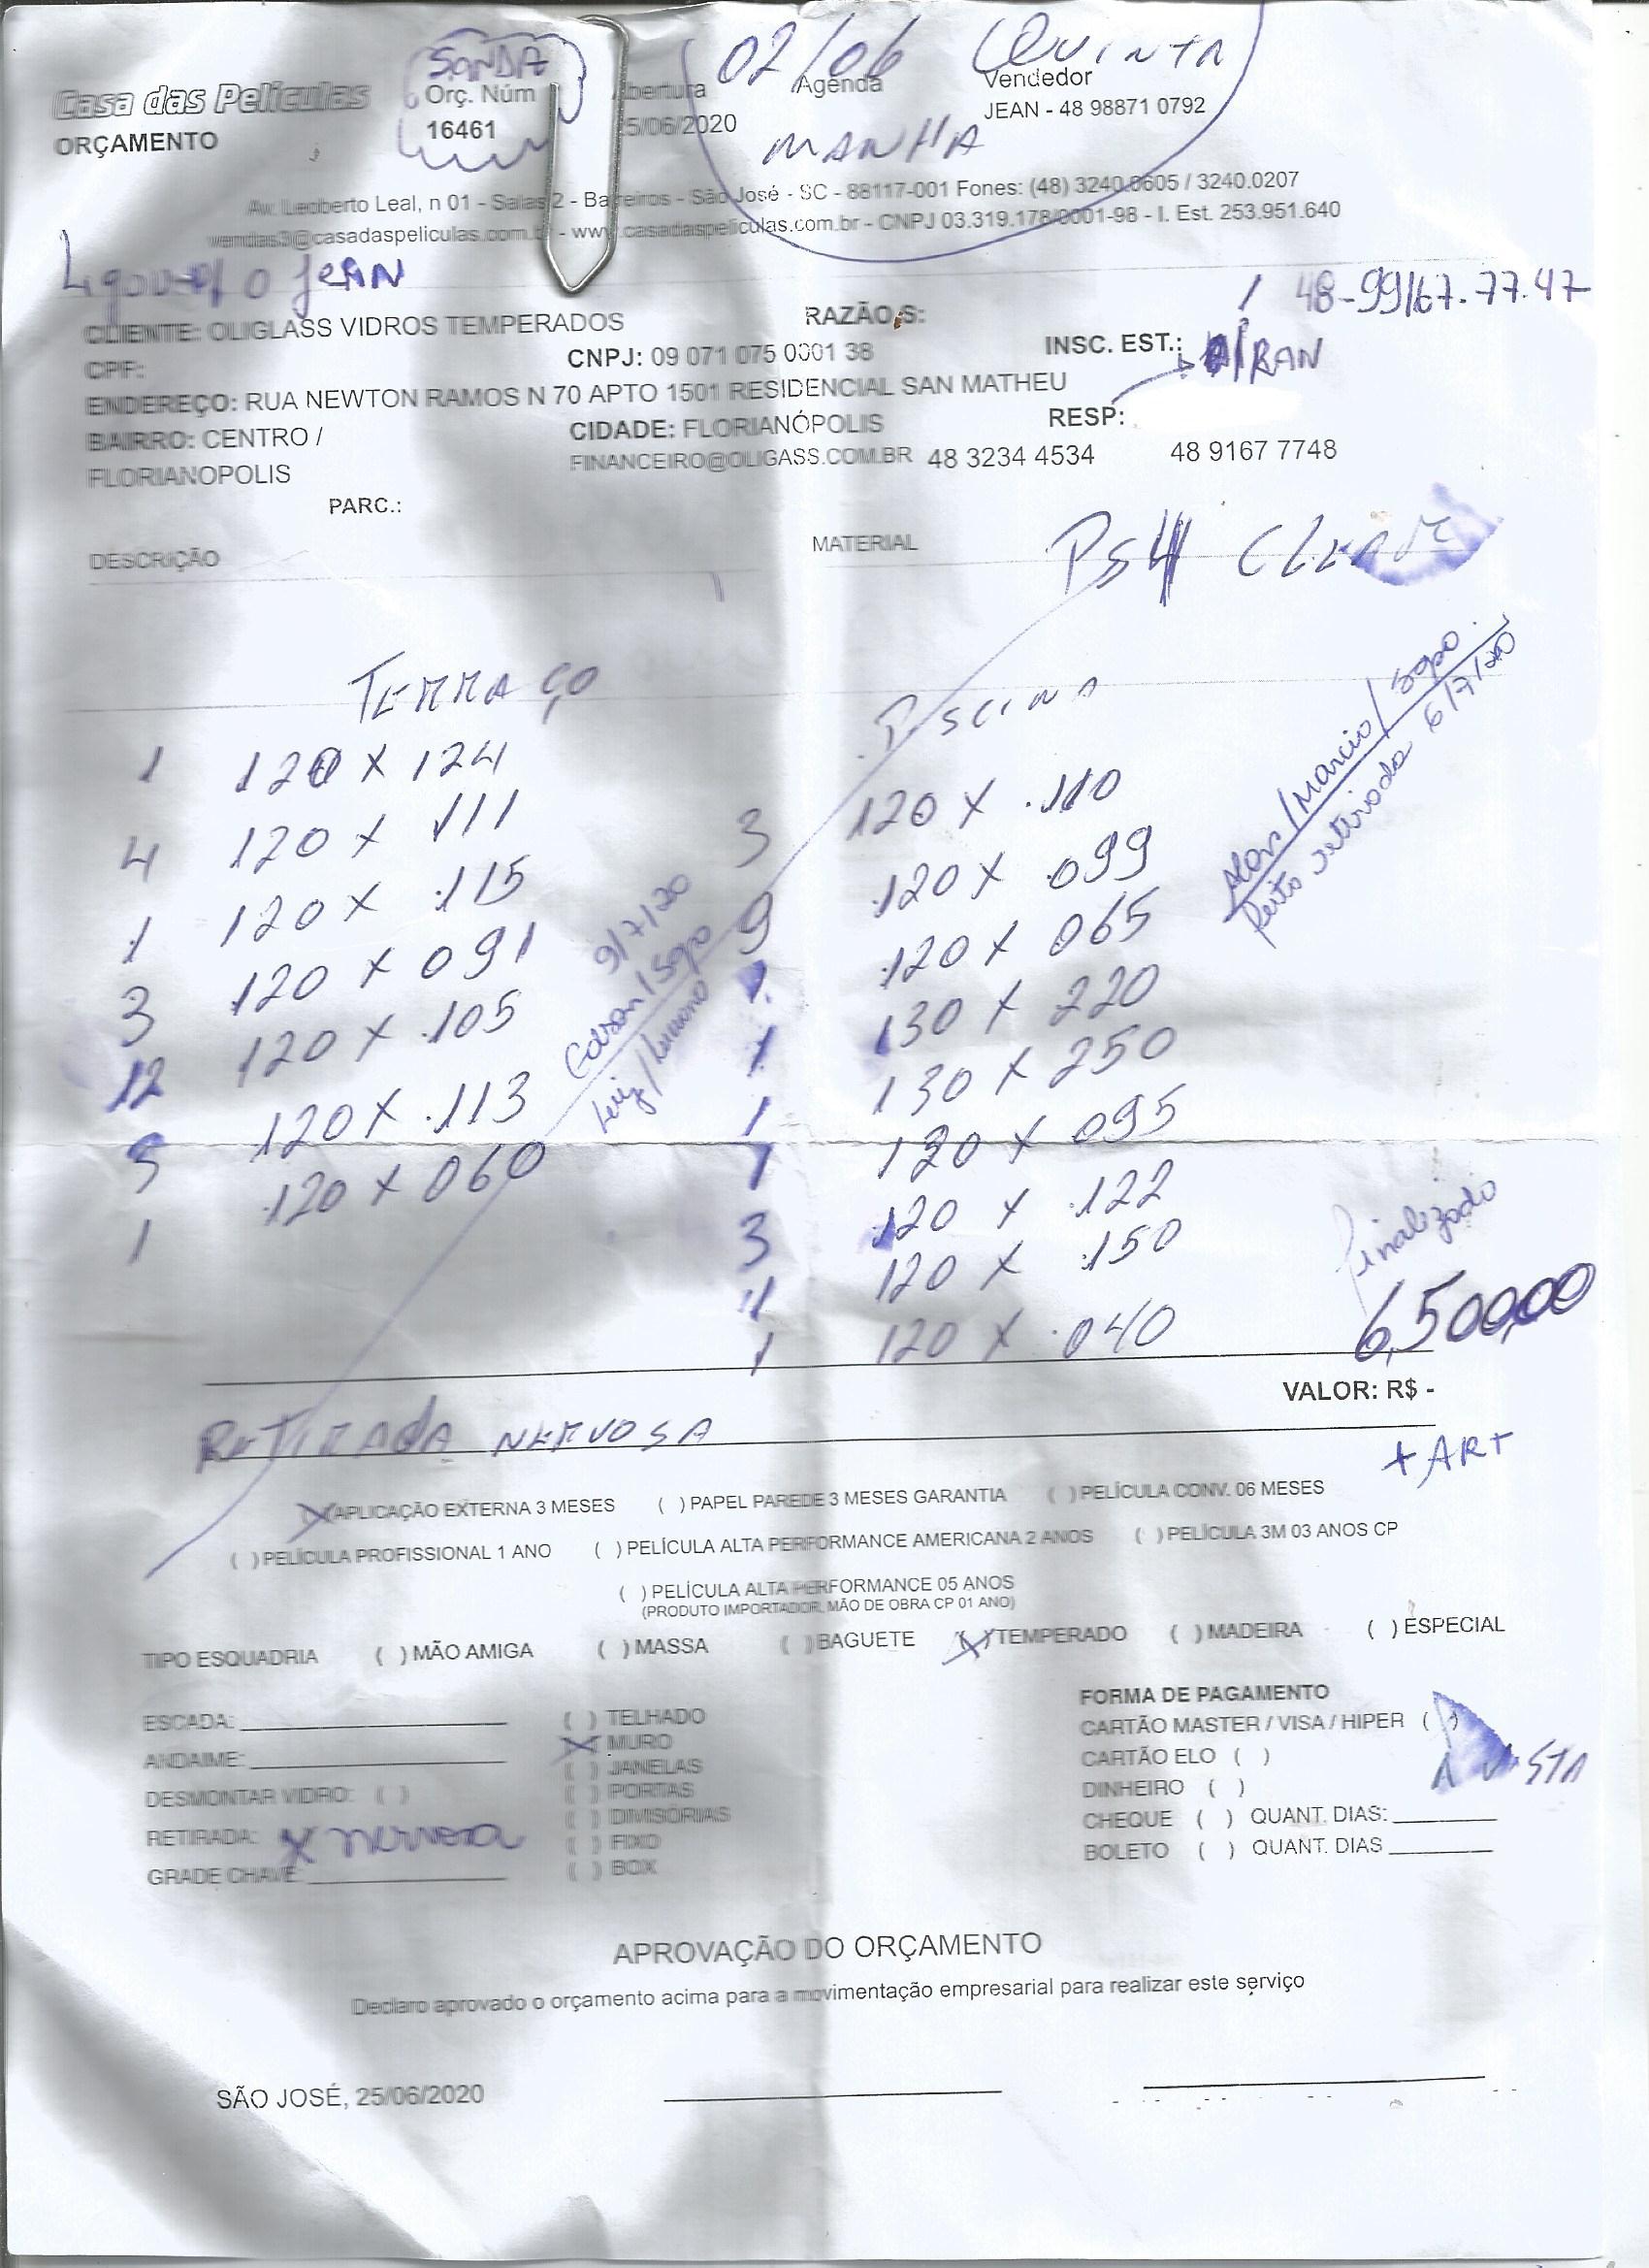 SONDA
02/06 QUINTA
Casa das Películas
Orç. Núm
Agenda
Vendedor
ORÇAMENTO
16461
5/06/2020
JEAN - 48 98871 0792
MANHA
Av. Leoberto Leal, n 01 - Salas 2 - Barreiros - São José - SC - 88117-001 Fones: (48) 3240.0605 / 3240.0207
vendas3@casadaspeliculas.com.b - www.casadaspeliculas.com.br - CNPJ 03.319.178/0001-98 - I. Est. 253.951.640
Ligou p/ o JEAN
48-99167.77.47
CLIENTE: OLIGLASS VIDROS TEMPERADOS
RAZÃO S:
CPF:
CNPJ: 09 071 075 0001 38
INSC. EST.:
IRAN
ENDEREÇO: RUA NEWTON RAMOS N 70 APTO 1501 RESIDENCIAL SAN MATHEU
BAIRRO: CENTRO /
CIDADE: FLORIANÓPOLIS
RESP:
FLORIANOPOLIS
FINANCEIRO@OLIGASS.COM.BR 48 3234 4534
48 9167 7748
PARC.:
DESCRIÇÃO
MATERIAL
PS4 CLEAR
TERRAÇO
1 120 X 124
4 120 X 111
1 120 X .115
3 120 X 091
12 120 X .105
5 120 X .113
1 120 X 060
9/7/20
Edson/Sgpo
Luiz/Luciano
PISCINA
3 120 X .110
9 120 X 099
1 120 X 065
1 130 X 220
1 130 X 250
7 120 X 095
3 120 X .122
11 120 X .150
1 120 X .040
/Marcio/Sgpo
feito retirada 6/7/20
Finalizado
6,500,00
VALOR: R$ -
RETIRADA NERVOSA
+ ART
(X) APLICAÇÃO EXTERNA 3 MESES ( ) PAPEL PAREDE 3 MESES GARANTIA ( ) PELÍCULA CONV. 06 MESES
( ) PELÍCULA PROFISSIONAL 1 ANO ( ) PELÍCULA ALTA PERFORMANCE AMERICANA 2 ANOS ( ) PELÍCULA 3M 03 ANOS CP
( ) PELÍCULA ALTA PERFORMANCE 05 ANOS
(PRODUTO IMPORTADOR, MÃO DE OBRA CP 01 ANO)
TIPO ESQUADRIA ( ) MÃO AMIGA ( ) MASSA ( ) BAGUETE (X) TEMPERADO ( ) MADEIRA ( ) ESPECIAL
ESCADA:
ANDAIME:
DESMONTAR VIDRO: ( )
RETIRADA: X nervosa
GRADE CHAVE:
( ) TELHADO
X MURO
( ) JANELAS
( ) PORTAS
( ) DIVISÓRIAS
( ) FIXO
( ) BOX
FORMA DE PAGAMENTO
CARTÃO MASTER / VISA / HIPER ( )
CARTÃO ELO ( )
A VISTA
DINHEIRO ( )
CHEQUE ( ) QUANT. DIAS:
BOLETO ( ) QUANT. DIAS
APROVAÇÃO DO ORÇAMENTO
Declaro aprovado o orçamento acima para a movimentação empresarial para realizar este serviço
SÃO JOSÉ, 25/06/2020